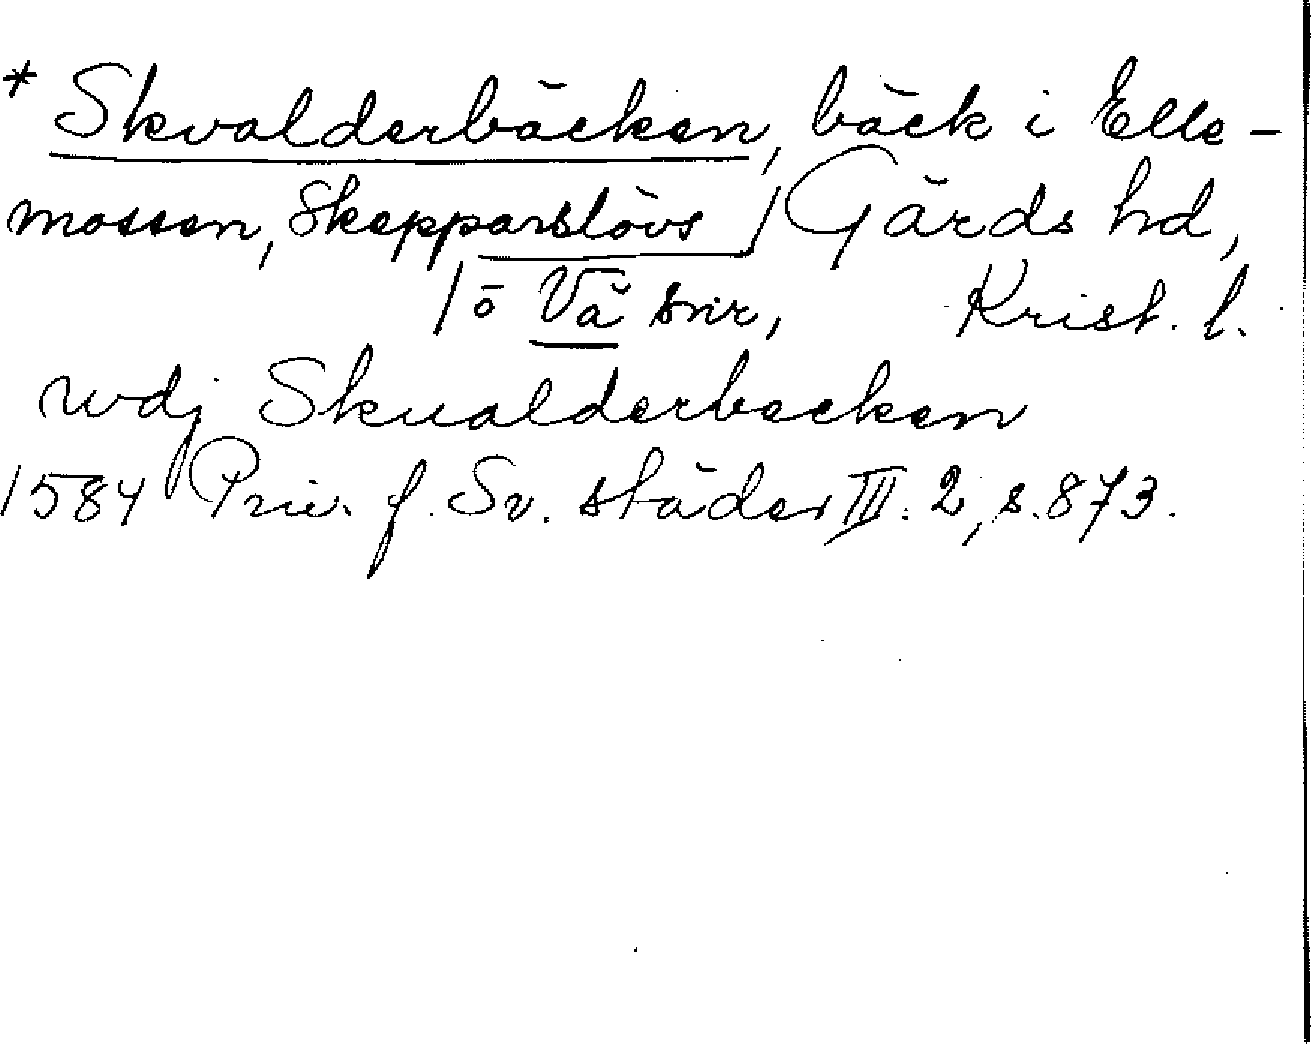 * Skvalderbäcken, bäck i Elle-
mossen, Skepparslövs Gärds hd,
o Vä snr, Krist. l.
wdj Skualderbecken
1584 Priv. f. Sv. städer III. 2, s. 873.